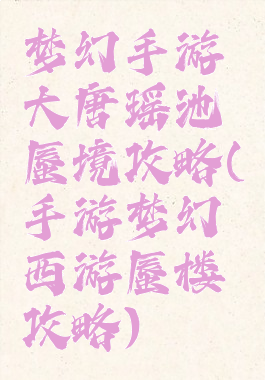 梦幻手游
大唐瑶池
蜃境攻略(
手游梦幻
西游蜃楼
攻略)